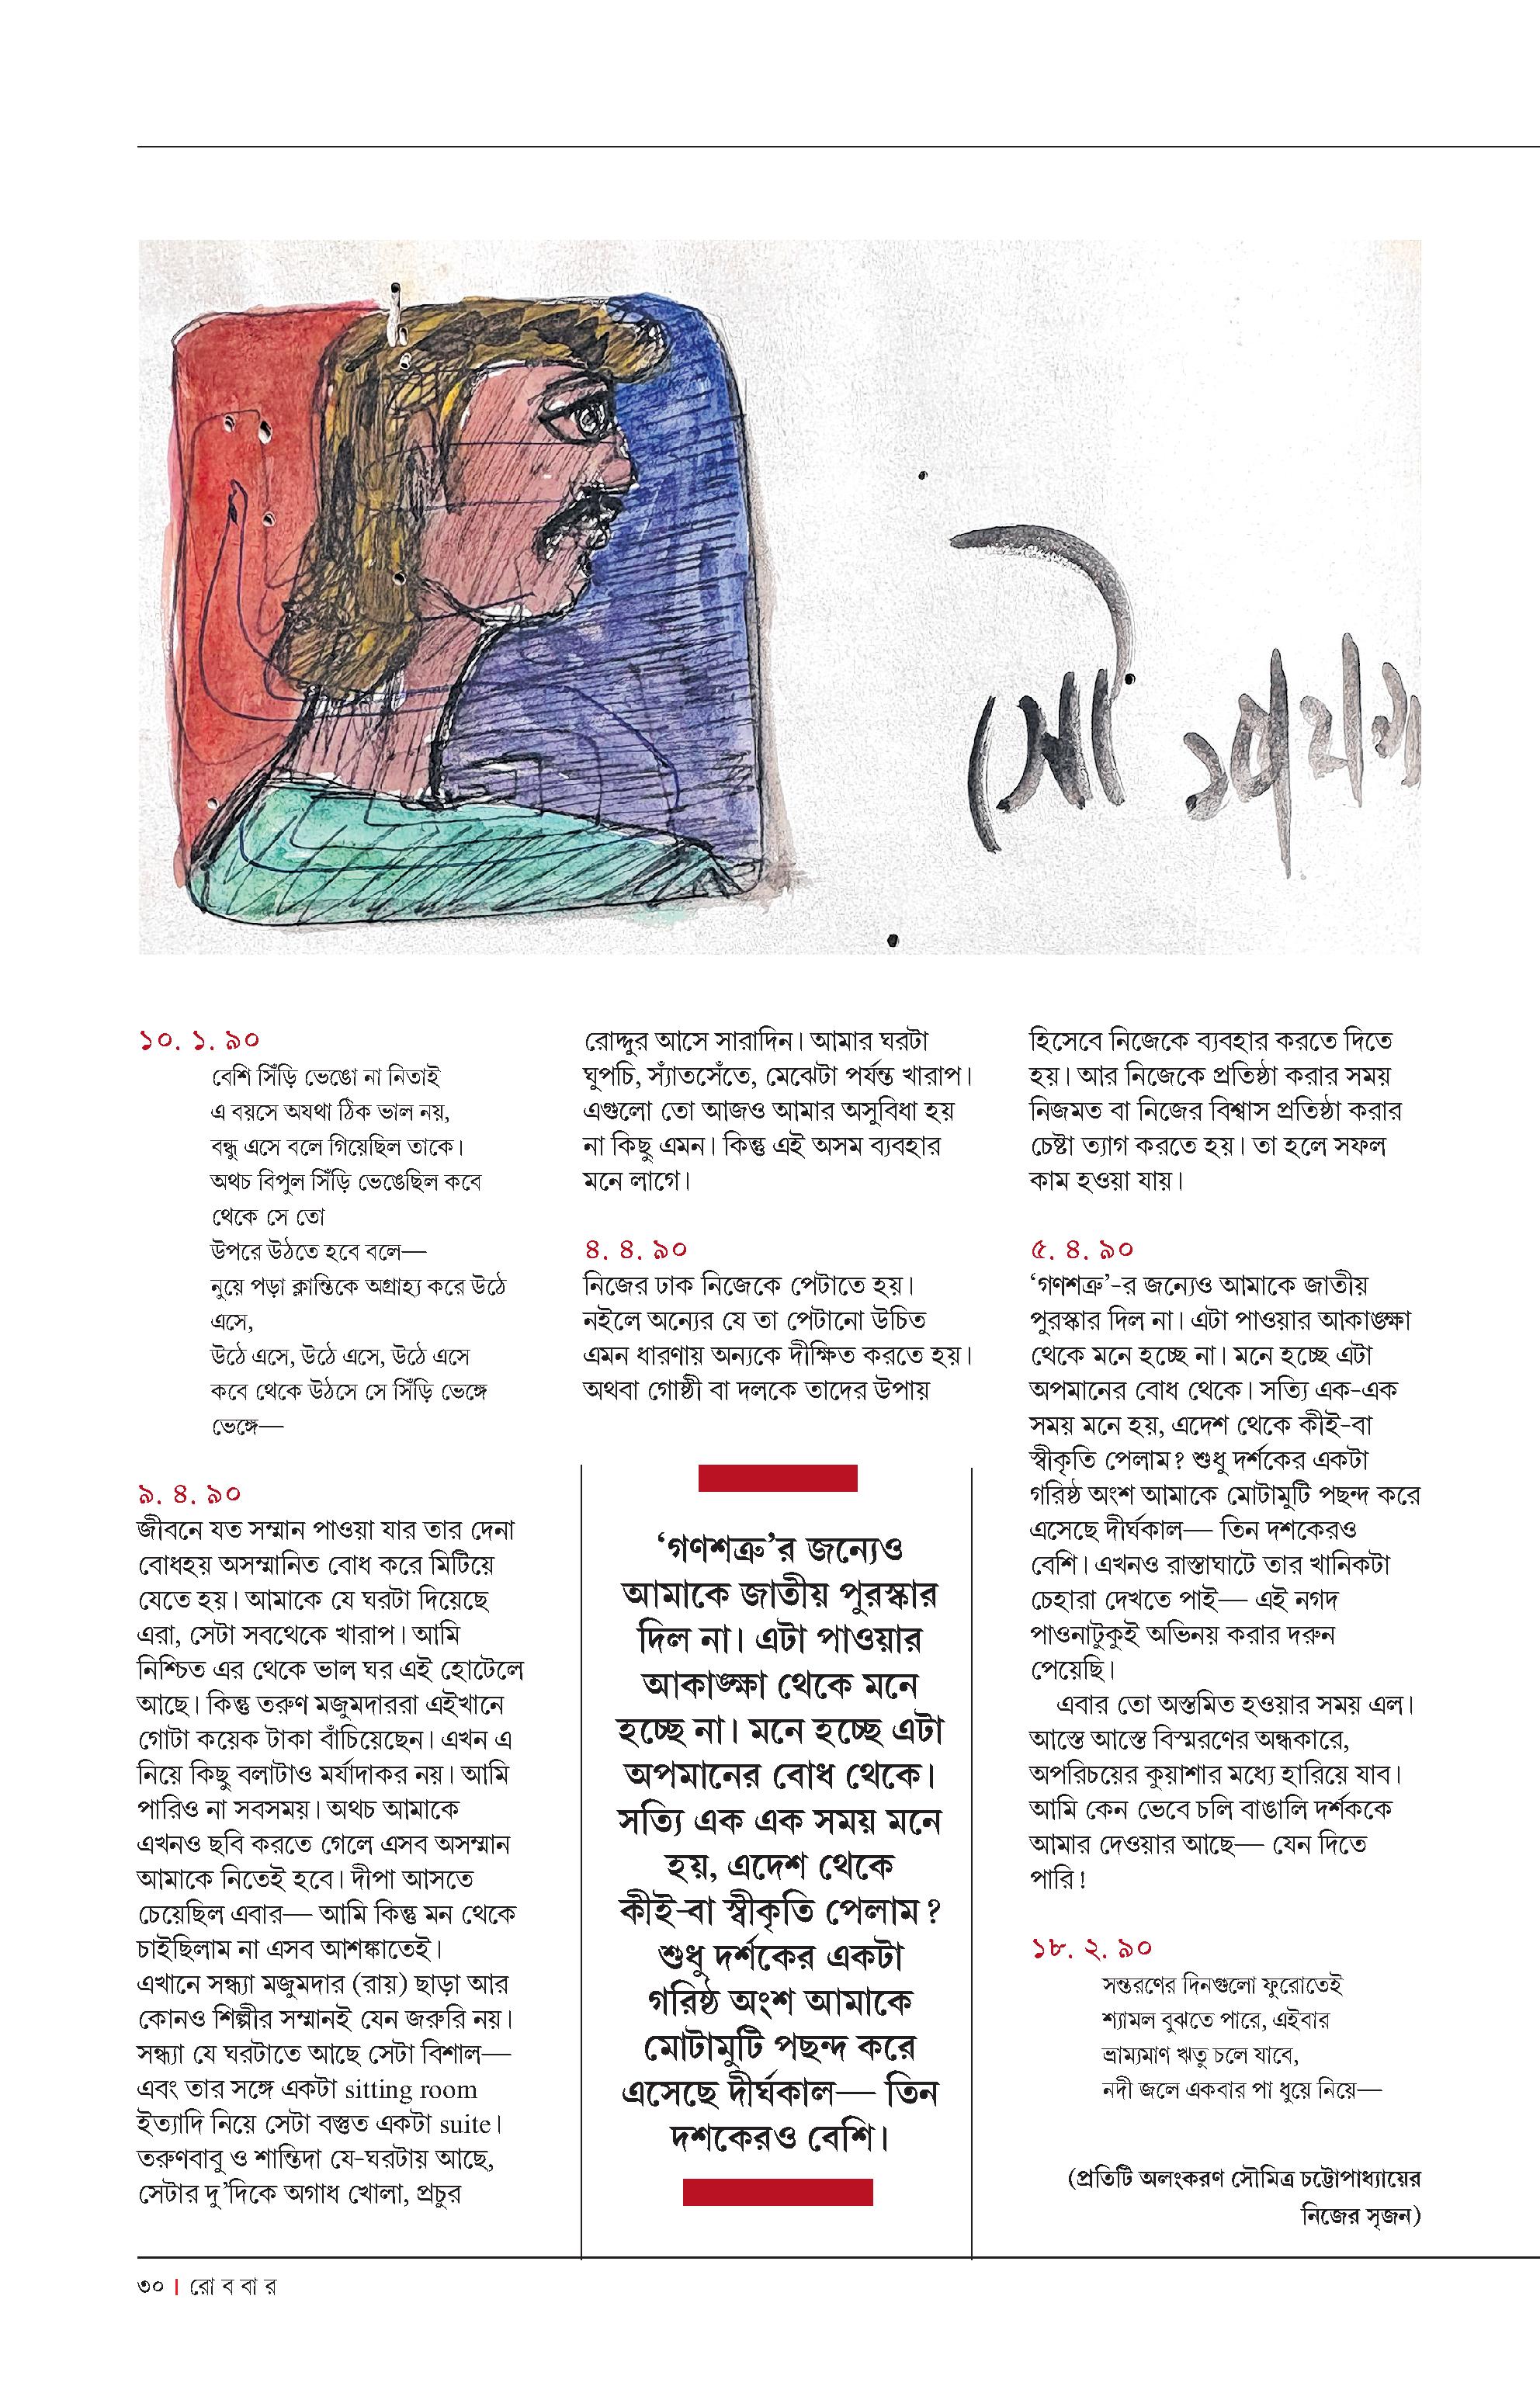 ১০. ১. ৯০
বেশি সিঁড়ি ভেঙো না নিতাই
এ বয়সে অযথা ঠিক ভাল নয়,
বন্ধু এসে বলে গিয়েছিল তাকে।
অথচ বিপুল সিঁড়ি ভেঙেছিল কবে
থেকে সে তো
উপরে উঠতে হবে বলে—
নুয়ে পড়া ক্লান্তিকে অগ্রাহ্য করে উঠে
এসে,
উঠে এসে, উঠে এসে, উঠে এসে
কবে থেকে উঠসে সে সিঁড়ি ভেঙ্গে
ভেঙ্গে—
৯. ৪. ৯০
জীবনে যত সম্মান পাওয়া যার তার দেনা
বোধহয় অসম্মানিত বোধ করে মিটিয়ে
যেতে হয়। আমাকে যে ঘরটা দিয়েছে
এরা, সেটা সবথেকে খারাপ। আমি
নিশ্চিত এর থেকে ভাল ঘর এই হোটেলে
আছে। কিন্তু তরুণ মজুমদাররা এইখানে
গোটা কয়েক টাকা বাঁচিয়েছেন। এখন এ
নিয়ে কিছু বলাটাও মর্যাদাকর নয়। আমি
পারিও না সবসময়। অথচ আমাকে
এখনও ছবি করতে গেলে এসব অসম্মান
আমাকে নিতেই হবে। দীপা আসতে
চেয়েছিল এবার— আমি কিন্তু মন থেকে
চাইছিলাম না এসব আশঙ্কাতেই।
এখানে সন্ধ্যা মজুমদার (রায়) ছাড়া আর
কোনও শিল্পীর সম্মানই যেন জরুরি নয়।
সন্ধ্যা যে ঘরটাতে আছে সেটা বিশাল—
এবং তার সঙ্গে একটা sitting room
ইত্যাদি নিয়ে সেটা বস্তুত একটা suite।
তরুণবাবু ও শান্তিদা যে-ঘরটায় আছে,
সেটার দু’দিকে অগাধ খোলা, প্রচুর
রোদ্দুর আসে সারাদিন। আমার ঘরটা
ঘুপচি, স্যাঁতসেঁতে, মেঝেটা পর্যন্ত খারাপ।
এগুলো তো আজও আমার অসুবিধা হয়
না কিছু এমন। কিন্তু এই অসম ব্যবহার
মনে লাগে।
৪. ৪. ৯০
নিজের ঢাক নিজেকে পেটাতে হয়।
নইলে অন্যের যে তা পেটানো উচিত
এমন ধারণায় অন্যকে দীক্ষিত করতে হয়।
অথবা গোষ্ঠী বা দলকে তাদের উপায়
‘গণশত্রু’র জন্যেও
আমাকে জাতীয় পুরস্কার
দিল না। এটা পাওয়ার
আকাঙ্ক্ষা থেকে মনে
হচ্ছে না। মনে হচ্ছে এটা
অপমানের বোধ থেকে।
সত্যি এক এক সময় মনে
হয়, এদেশ থেকে
কীই-বা স্বীকৃতি পেলাম?
শুধু দর্শকের একটা
গরিষ্ঠ অংশ আমাকে
মোটামুটি পছন্দ করে
এসেছে দীর্ঘকাল— তিন
দশকেরও বেশি।
হিসেবে নিজেকে ব্যবহার করতে দিতে
হয়। আর নিজেকে প্রতিষ্ঠা করার সময়
নিজমত বা নিজের বিশ্বাস প্রতিষ্ঠা করার
চেষ্টা ত্যাগ করতে হয়। তা হলে সফল
কাম হওয়া যায়।
৫. ৪. ৯০
‘গণশত্রু’-র জন্যেও আমাকে জাতীয়
পুরস্কার দিল না। এটা পাওয়ার আকাঙ্ক্ষা
থেকে মনে হচ্ছে না। মনে হচ্ছে এটা
অপমানের বোধ থেকে। সত্যি এক-এক
সময় মনে হয়, এদেশ থেকে কীই-বা
স্বীকৃতি পেলাম? শুধু দর্শকের একটা
গরিষ্ঠ অংশ আমাকে মোটামুটি পছন্দ করে
এসেছে দীর্ঘকাল— তিন দশকেরও
বেশি। এখনও রাস্তাঘাটে তার খানিকটা
চেহারা দেখতে পাই— এই নগদ
পাওনাটুকুই অভিনয় করার দরুন
পেয়েছি।
এবার তো অস্তমিত হওয়ার সময় এল।
আস্তে আস্তে বিস্মরণের অন্ধকারে,
অপরিচয়ের কুয়াশার মধ্যে হারিয়ে যাব।
আমি কেন ভেবে চলি বাঙালি দর্শককে
আমার দেওয়ার আছে— যেন দিতে
পারি!
১৮. ২. ৯০
সন্তরণের দিনগুলো ফুরোতেই
শ্যামল বুঝতে পারে, এইবার
ভ্রাম্যমাণ ঋতু চলে যাবে,
নদী জলে একবার পা ধুয়ে নিয়ে—
(প্রতিটি অলংকরণ সৌমিত্র চট্টোপাধ্যায়ের
নিজের সৃজন)
৩০ | রো ব বা র